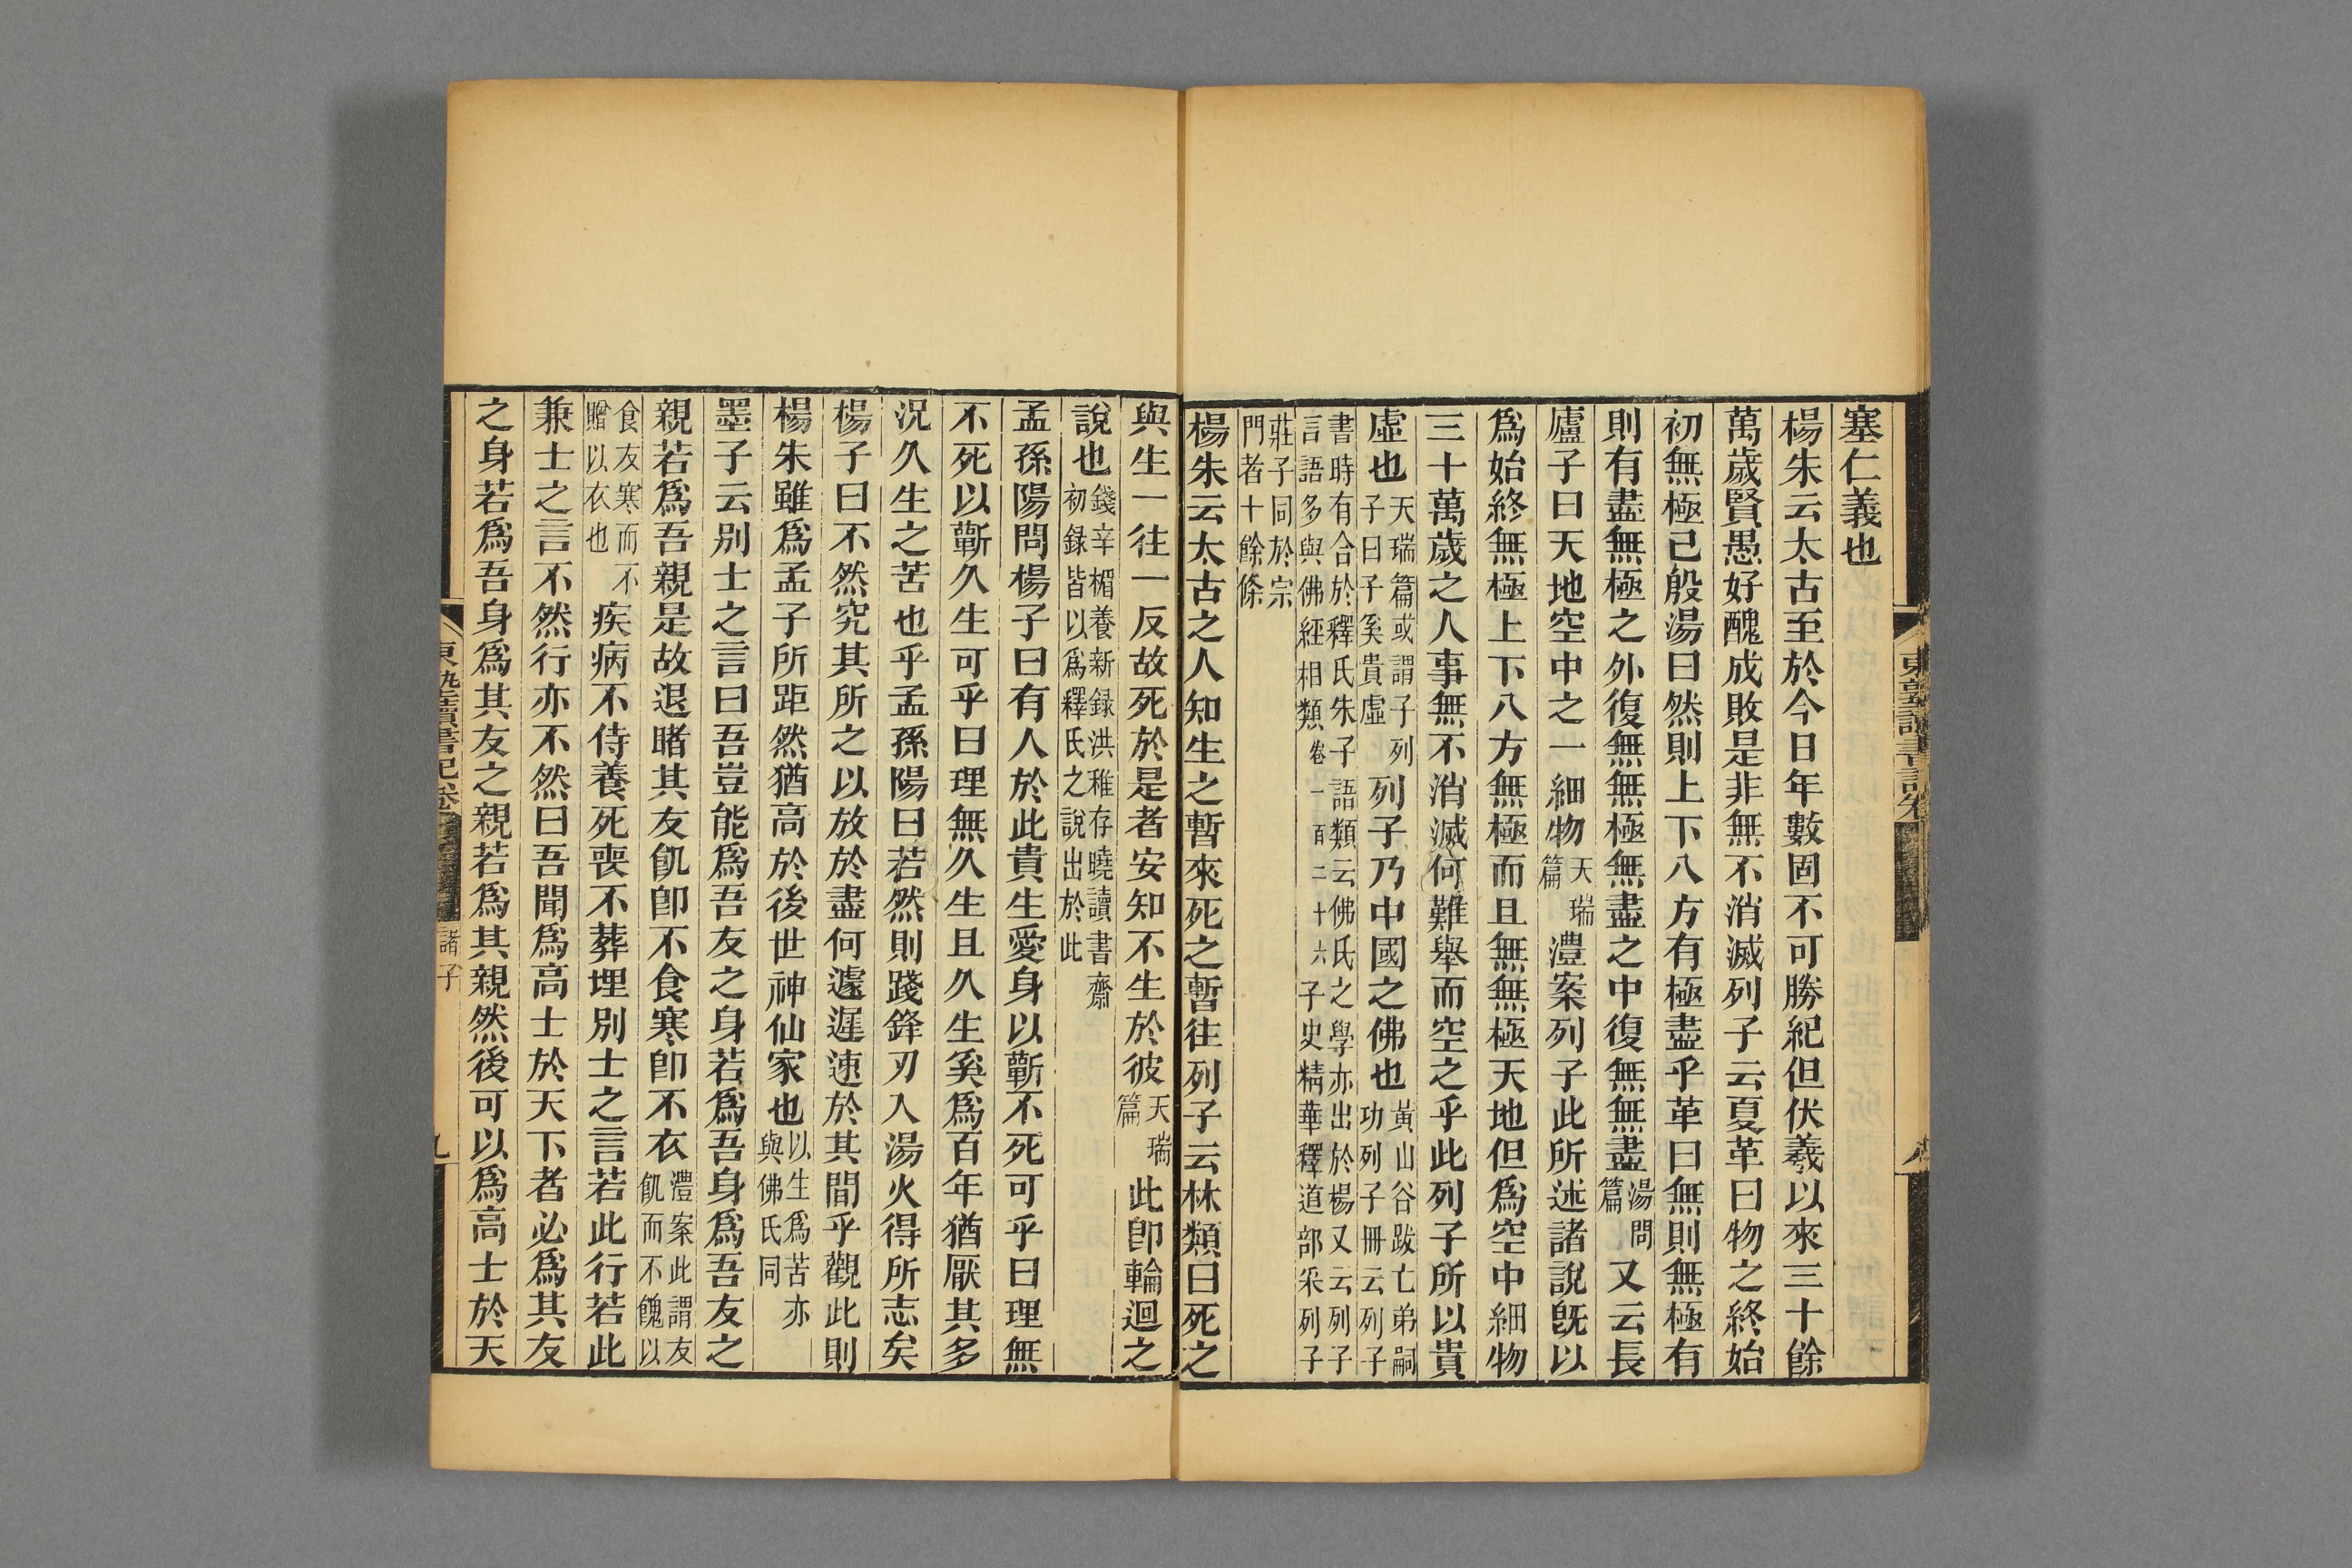 塞仁義也
楊朱云太古至於今日年數固不可勝紀但伏羲以來三十餘
萬歲賢愚好醜成敗是非無不消滅列子云夏革曰物之終始
初無極已殷湯曰然則上下八方有極盡乎革曰無則無極有
則有盡無極之外復無無極無盡之中復無無盡湯問篇又云長
廬子曰天地空中之一細物天瑞篇澧案列子此所述諸說旣以
爲始終無極上下八方無極而且無無極天地但爲空中細物
三十萬歲之人事無不消滅何難舉而空之乎此列子所以貴
虛也天瑞篇或謂子列子曰子奚貴虛列子乃中國之佛也黃山谷跋亡弟嗣功列子冊云列子
書時有合於釋氏朱子語類云佛氏之學亦出於楊又云列子言語多與佛經相類卷一百二十六子史精華釋道部采列子
莊子同於宗門者十餘條
楊朱云太古之人知生之暫來死之暫往列子云林類曰死之
與生一往一反故死於是者安知不生於彼天瑞篇此卽輪迴之
說也錢辛楣養新録洪稚存曉讀書齋初録皆以爲釋氏之說出於此
孟孫陽問楊子曰有人於此貴生愛身以蘄不死可乎曰理無
不死以蘄久生可乎曰理無久生且久生奚爲百年猶厭其多
況久生之苦也乎孟孫陽曰若然則踐鋒刃入湯火得所志矣
楊子曰不然究其所之以放於盡何遽遲速於其間乎觀此則
楊朱雖爲孟子所距然猶高於後世神仙家也以生爲苦亦與佛氏同
墨子云別士之言曰吾豈能爲吾友之身若爲吾身爲吾友之
親若爲吾親是故退睹其友飢卽不食寒卽不衣澧案此謂友飢而不餽以
食友寒而不贈以衣也疾病不侍養死喪不葬埋別士之言若此行若此
兼士之言不然行亦不然曰吾聞爲高士於天下者必爲其友
之身若爲吾身爲其友之親若爲其親然後可以爲高士於天
東塾讀書記卷
諸子
九